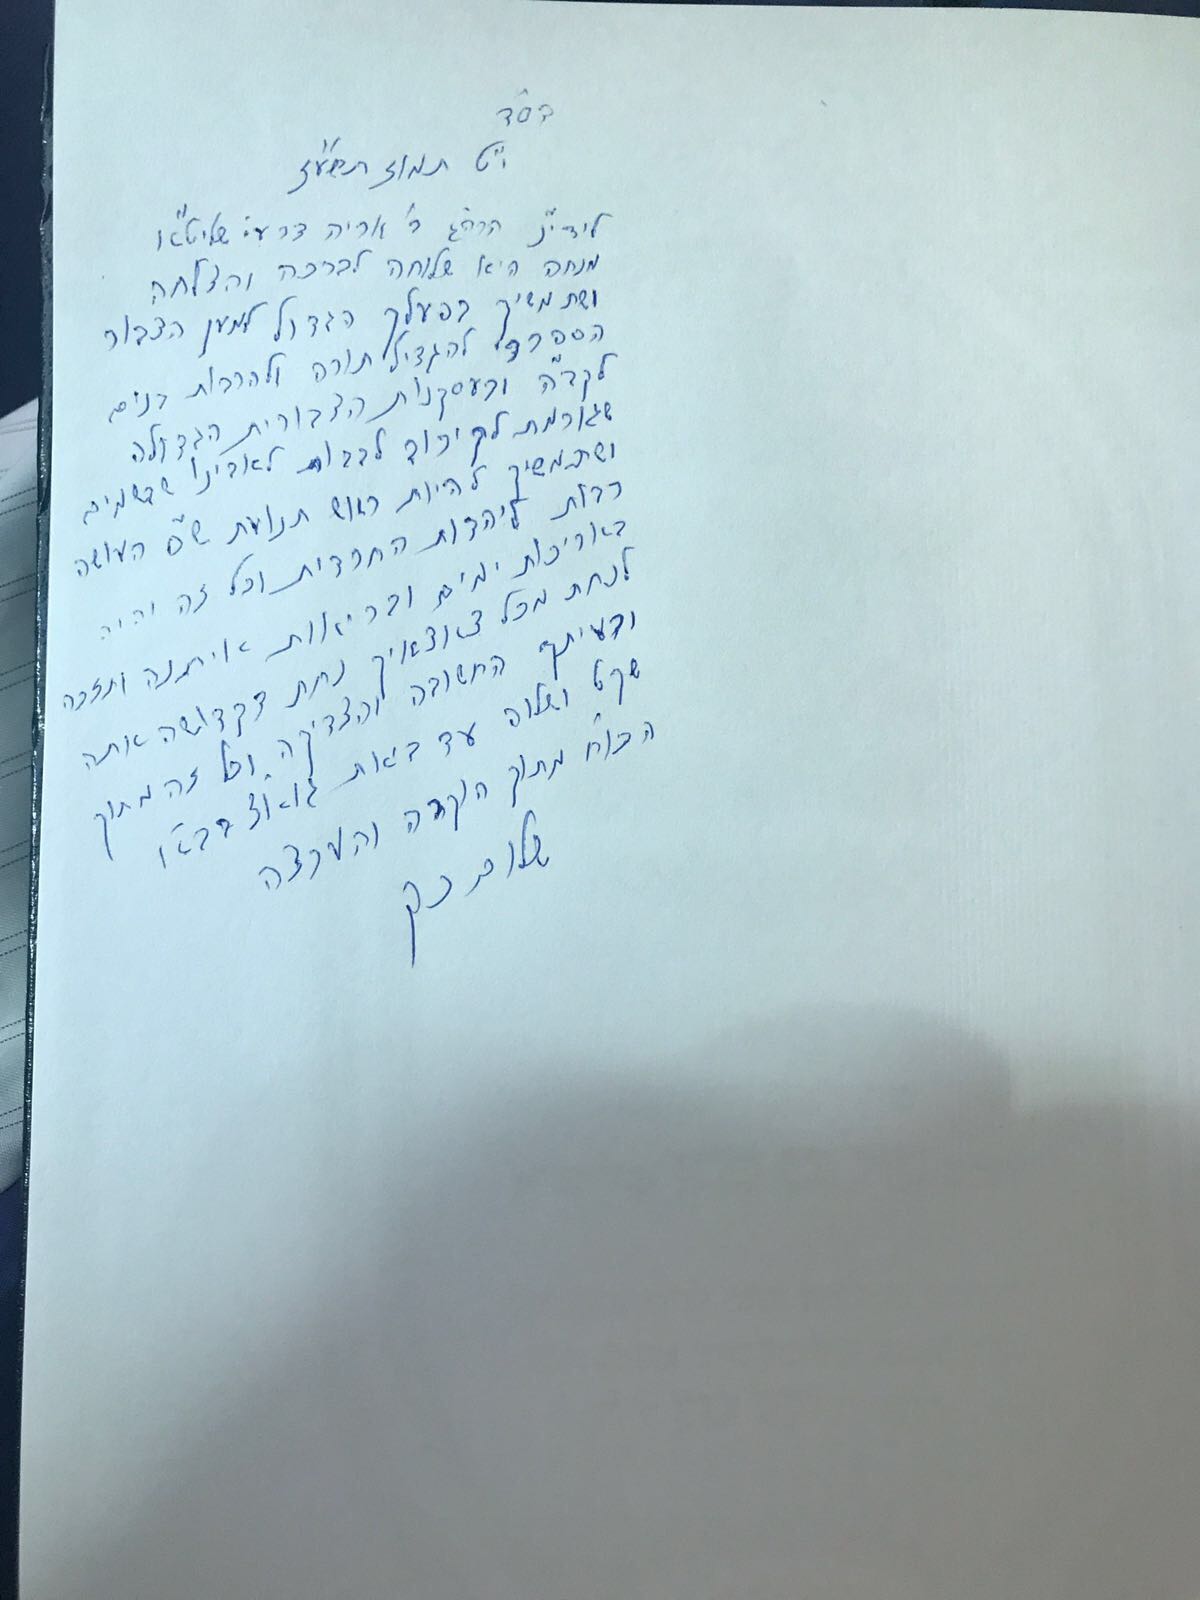 בס"ד
י"ט תמוז תשע"ז
לידי"נ הרה"ג ר' אריה דרעי שליט"א
מנחה היא שלוחה לברכה והצלחה
ושתמשיך בפעלך הגדול למען הצבור
הספרדי להגדיל תורה ולהרבות בנים
לקב"ה ובעסקנות הצבורית הגדולה
שגורמת לקירוב לבבות לאבינו שבשמים
ושתמשיך להיות ראש תנועת ש"ס העושה
רבות ליהדות החרדית וכל זה יהיה
באריכות ימים ובריאות איתנה ותזכה
לנחת מכל צאצאיך נחת דקדושה אתה
ורעיתך החשובה והצדיקה וכל זה מתוך
שקט ושלוה עד ביאת גוא"צ בב"א
הכו"ח מתוך הוקרה והערצה
שלום כהן